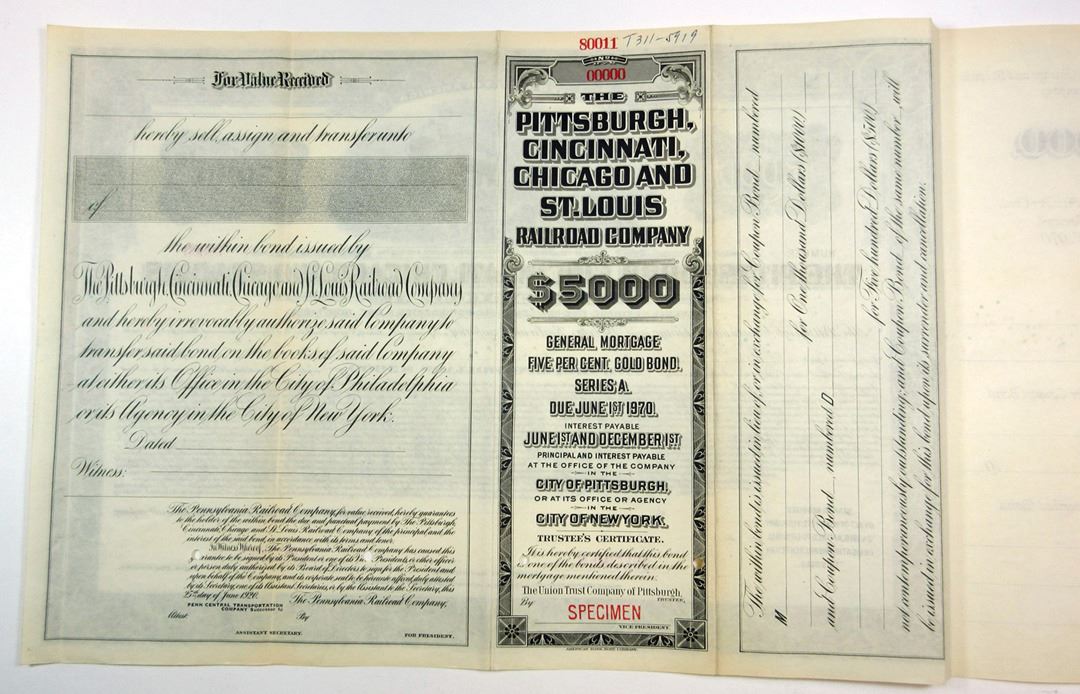 For Value Received
hereby sell, assign and transfer unto
of
the within bond issued by
The Pittsburgh, Cincinnati, Chicago and St. Louis Railroad Company
and hereby irrevocably authorize said Company to
transfer said bond on the books of said Company
at either its Office in the City of Philadelphia
or its Agency in the City of New York.
Dated
Witness:
The Pennsylvania Railroad Company, for value received, hereby guarantees
to the holder of the within bond the due and punctual payment by The Pittsburgh,
Cincinnati, Chicago and St. Louis Railroad Company of the principal and the
interest of the said bond, in accordance with its terms and tenor.
In Witness Whereof, The Pennsylvania Railroad Company has caused this
guarantee to be signed by its President or one of its Vice Presidents, or other officer
or person duly authorized by its Board of Directors to sign for the President and
upon behalf of the Company, and its corporate seal to be hereunto affixed, duly attested
by its Secretary, one of its Assistant Secretaries, or by the Assistant to the Secretary, this
25th day of June 1920.
The Pennsylvania Railroad Company,
PENN CENTRAL TRANSPORTATION
COMPANY Successor to
Attest:
By
ASSISTANT SECRETARY.
FOR PRESIDENT.
80011 T311-5919
No
00000
THE
PITTSBURGH,
CINCINNATI,
CHICAGO AND
ST. LOUIS
RAILROAD COMPANY
$5000
GENERAL MORTGAGE
FIVE PER CENT. GOLD BOND.
SERIES A.
DUE JUNE 1ST 1970.
INTEREST PAYABLE
JUNE 1ST AND DECEMBER 1ST
PRINCIPAL AND INTEREST PAYABLE
AT THE OFFICE OF THE COMPANY
IN THE
CITY OF PITTSBURGH,
OR AT ITS OFFICE OR AGENCY
IN THE
CITY OF NEW YORK.
TRUSTEE'S CERTIFICATE.
It is hereby certified that this bond
is one of the bonds described in the
mortgage mentioned therein.
The Union Trust Company of Pittsburgh,
TRUSTEE,
By
SPECIMEN
VICE PRESIDENT.
AMERICAN BANK NOTE COMPANY.
The within bond is issued in lieu of, or in exchange for Coupon Bond numbered
M for One thousand Dollars ($1000)
and Coupon Bond numbered D
for Five hundred Dollars ($500)
not contemporaneously outstanding; and Coupon Bond of the same number will
be issued in exchange for this bond upon its surrender and cancellation.